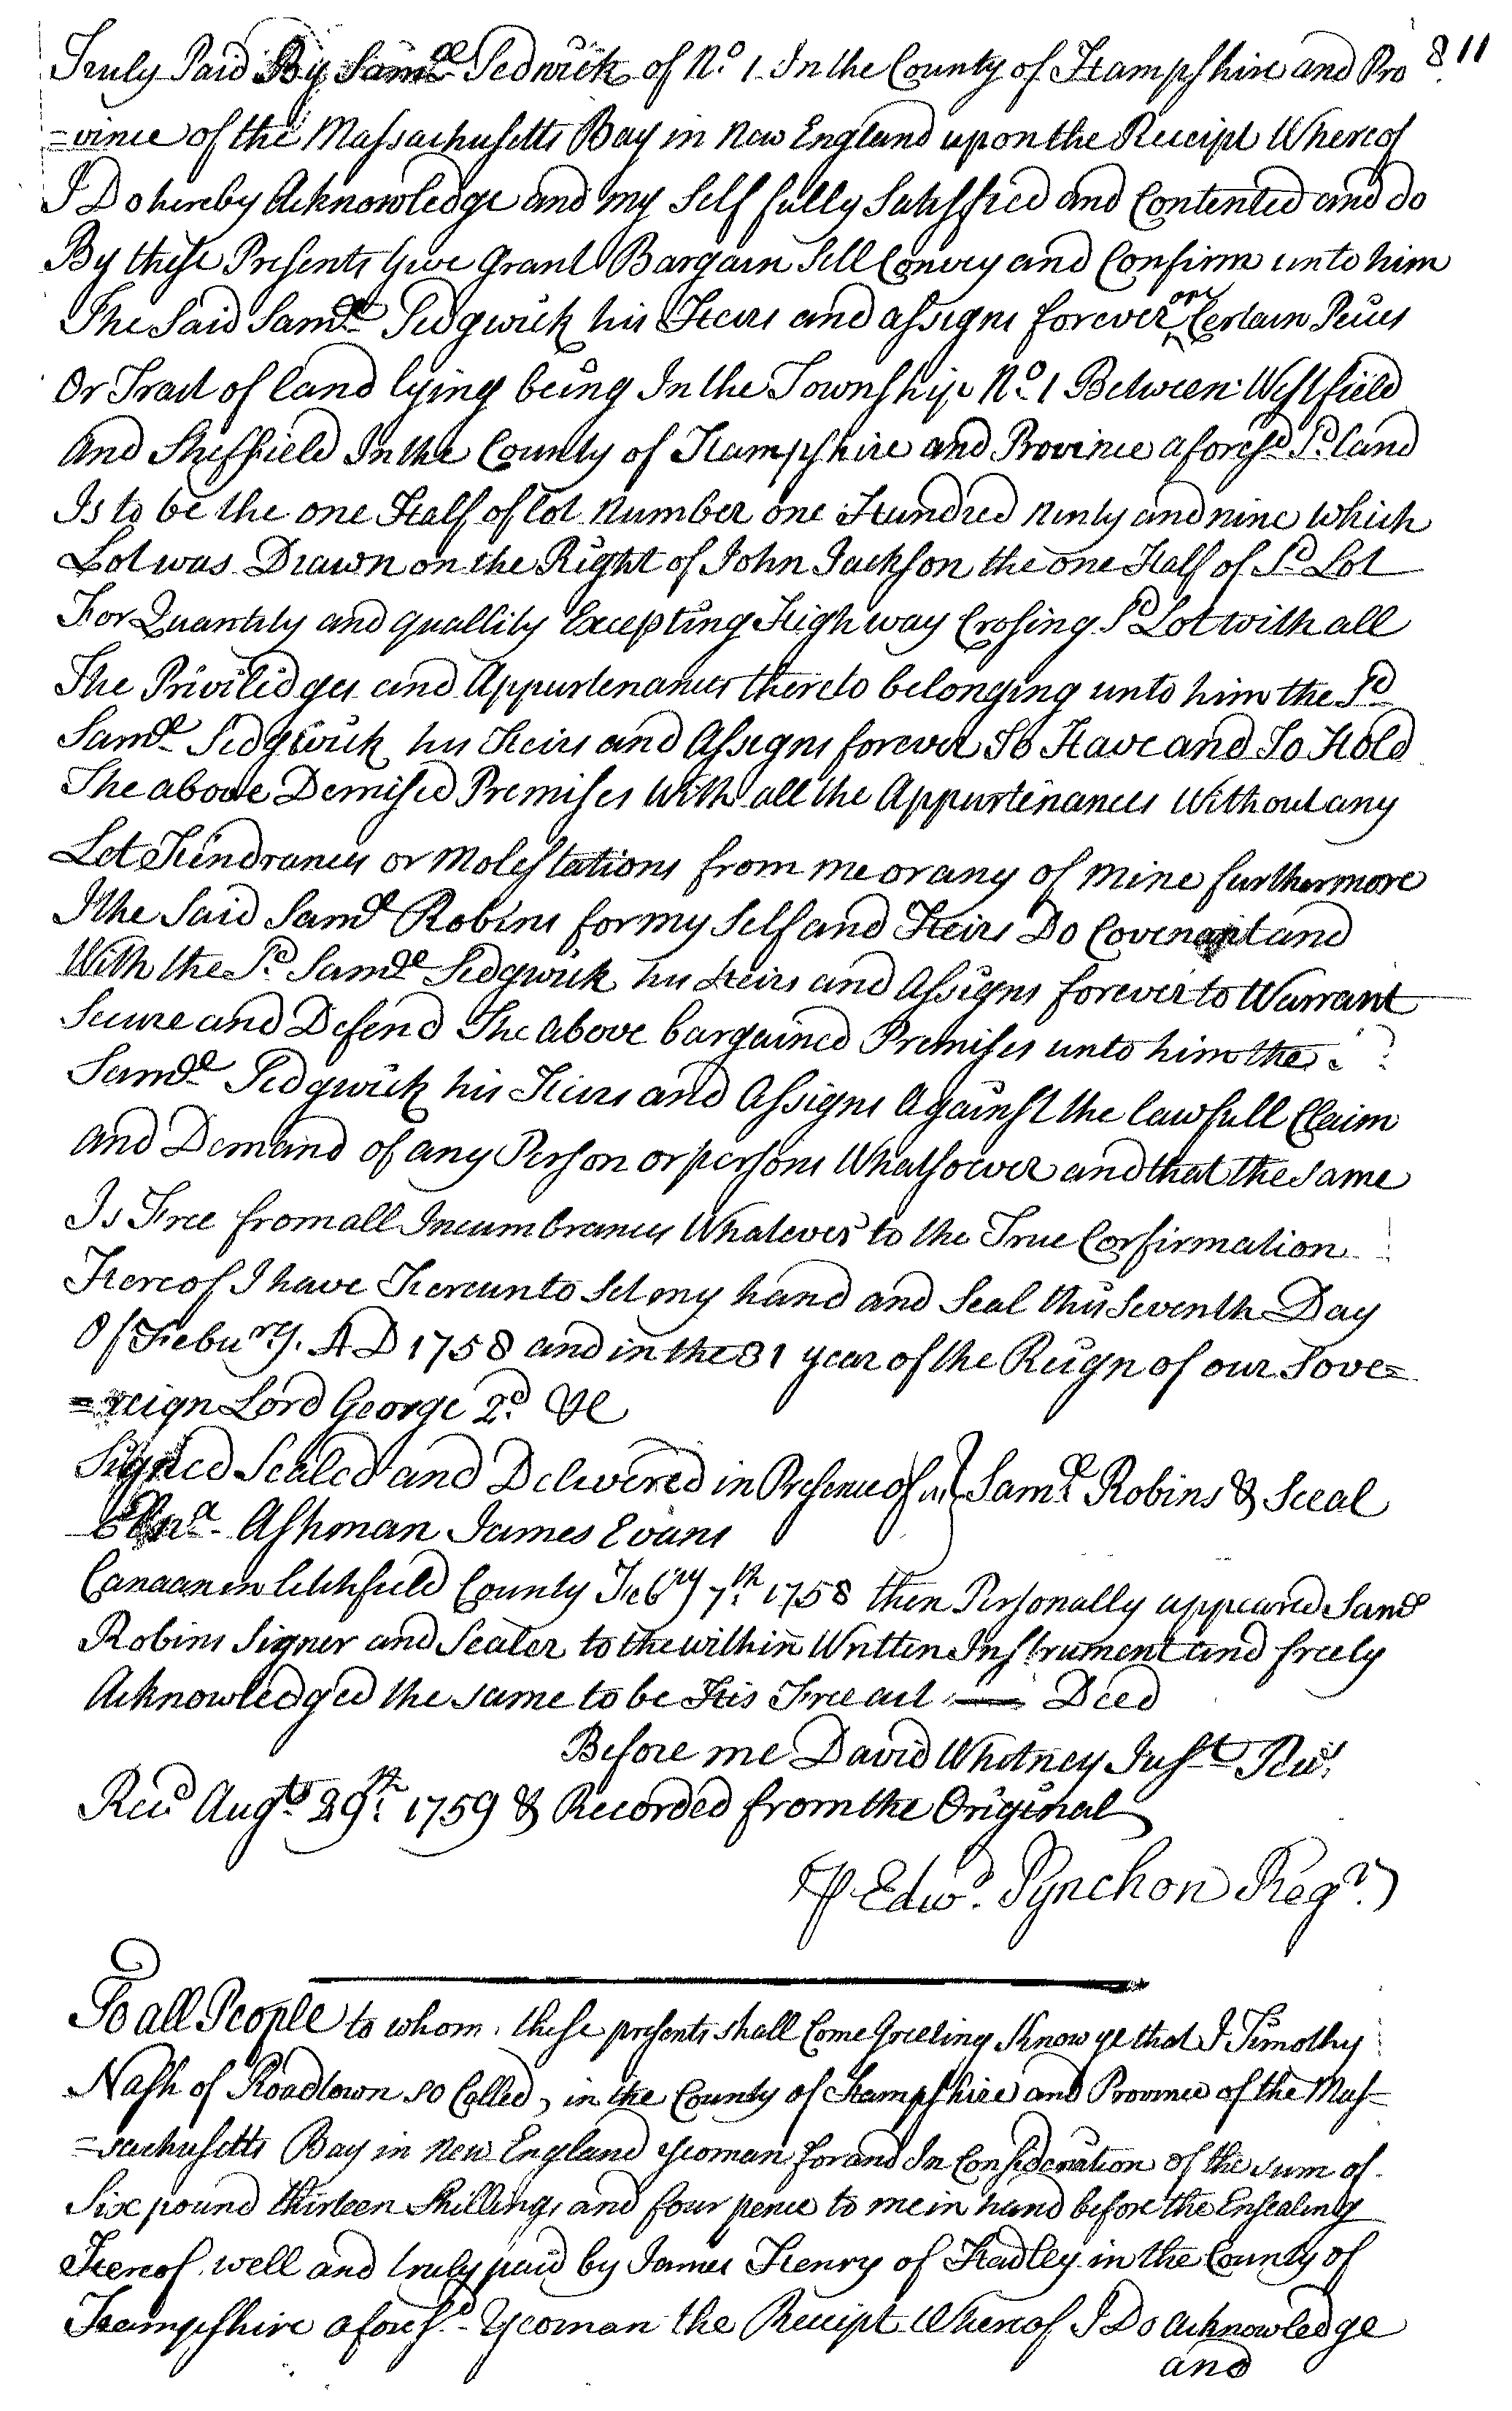 811
Truly Paid By Sam.ll Sedwick of N.o 1 In the County of Hampshire and Pro
=vince of the Massachusetts Bay in New England upon the Receipt Whereof
I Do hereby Acknowledge and my Self fully Satisfied and Contented and do
By these Presents Give Grant Bargain Sell Convey and Confirm unto him
The Said Sam.ll Sedgwick his Heirs and assigns forever one Certain Peices
Or Tract of land lying being In the Township N.o 1 Between Westfield
And Sheffield In the County of Hampshire and Province afores.d S.d land
Is to be the one Half of lot Number one Hundred ninty and nine which
Lot was Drawn on the Right of John Jackson the one Half of S.d Lot
For Quantity and quallity Excepting High way Crosing S.d Lot with all
The Priviledges and Appurtenances thereto belonging unto him the S.d
Sam.ll Sedgwick his Heirs and Assigns forever To Have and To Hold
The above Demised Premises With all the Appurtenances Without any
Let Hindrances or Molestations from me or any of mine furthermore
I the Said Sam.ll Robins for my Self and Heirs Do Covenant and
With the S.d Sam.ll Sedgwick his Heirs and Assigns forever to Warrant
Secure and Defend The above bargained Premises unto him the
Sam.ll Sedgwick his Heirs and Assigns Against the lawfull Claim
and Demand of any Person or persons Whatsoever and that the same
Is Free from all Incumbrances Whatever to the True Corfirmation
Hereof I have Hereunto Set my hand and Seal this Seventh Day
Of Febu.ry A D 1758 and in the 31 year of the Reign of our Sove=
=reign Lord George 2.d &c
Signed Sealed and Delivered in Presence of us Sam.ll Robins & Seal
Ashman James Evans
Canaan in litchfield County Feb.ry 7.th 1758 then Personally appeared Sam.ll
Robins Signer and Sealer to the within Written Instrument and freely
Acknowledged the same to be His Free act — Deed
Before me David Whitney Just.
Rec.d Aug.t 29.th 1759 & Recorded from the Original
P Edw.d Pynchon Reg.r
To all People to whom these presents shall Come Greeting Know ye that I Timothy
Nash of Roadtown so Called, in the County of Hampshire and Province of the Mas=
=sachusetts Bay in New England Yeoman for and In Consideration of the sum of
Six pound thirteen Shillings and four pence to me in hand before the Ensealing
Hereof well and truly paid by James Henry of Hadley in the County of
Hampshire afores.d Yeoman the Receipt Whereof I Do acknowledge
and